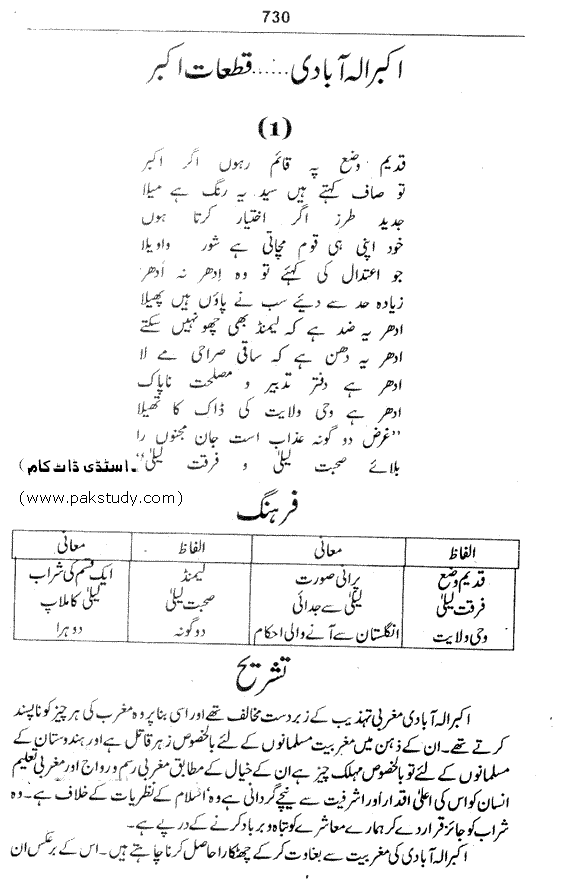 730
اکبر الہ آبادی ...... قطعات اکبر
(1)
قدیم وضع پہ قائم رہوں اگر اکبر
تو صاف کہتے ہیں سید یہ رنگ ہے میلا
جدید طرز اگر اختیار کرتا ہوں
خود اپنی ہی قوم مچاتی ہے شور واویلا
جو اعتدال کی کہئے تو وہ اِدھر نہ اُدھر
زیادہ حد سے دئیے سب نے پاؤں ہیں پھیلا
ادھر یہ ضد ہے کہ لیمنڈ بھی چھو نہیں سکتے
ادھر یہ دھن ہے کہ ساقی صراحی مے لا
ادھر ہے دفتر تدبیر و مصلحت ناپاک
ادھر ہے وحی ولایت کی ڈاک کا تھیلا
’’غرض دو گونہ عذاب است جان مجنوں را
بلائے صحبت لیلیٰ و فرقت لیلیٰ‘‘
۔اسٹڈی ڈاٹ کام )
(www.pakstudy.com)
فرہنگ
الفاظ معانی الفاظ معانی
قدیم وضع پرانی صورت لیمنڈ ایک قسم کی شراب
فرقت لیلیٰ لیلیٰ سے جدائی صحبت لیلیٰ لیلیٰ کا ملاپ
وحی ولایت انگلستان سے آنے والی احکام دو گونہ دوہرا
تشریح
اکبر الہ آبادی مغربی تہذیب کے زبردست مخالف تھے اور اسی بنا پر وہ مغرب کی ہر چیز کو ناپسند
کرتے تھے۔ ان کے ذہن میں مغربیت مسلمانوں کے لئے بالخصوص زہر قاتل ہے اور ہندوستان کے
مسلمانوں کے لئے تو بالخصوص مہلک چیز ہے ان کے خیال کے مطابق مغربی رسم و رواج اور مغربی تعلیم
انسان کو اس کی اعلیٰ اقدار اور اشرفیت سے نیچے گردانی ہے وہ اسلام کے نظریات کے خلاف ہے۔ وہ
شراب کو جائز قرار دے کر ہمارے معاشرے کو تباہ و برباد کرنے کے درپے ہے۔
اکبر الہ آبادی کی مغربیت سے بغاوت کر کے چھٹکارا حاصل کرنا چاہتے ہیں۔ اس کے برعکس ان